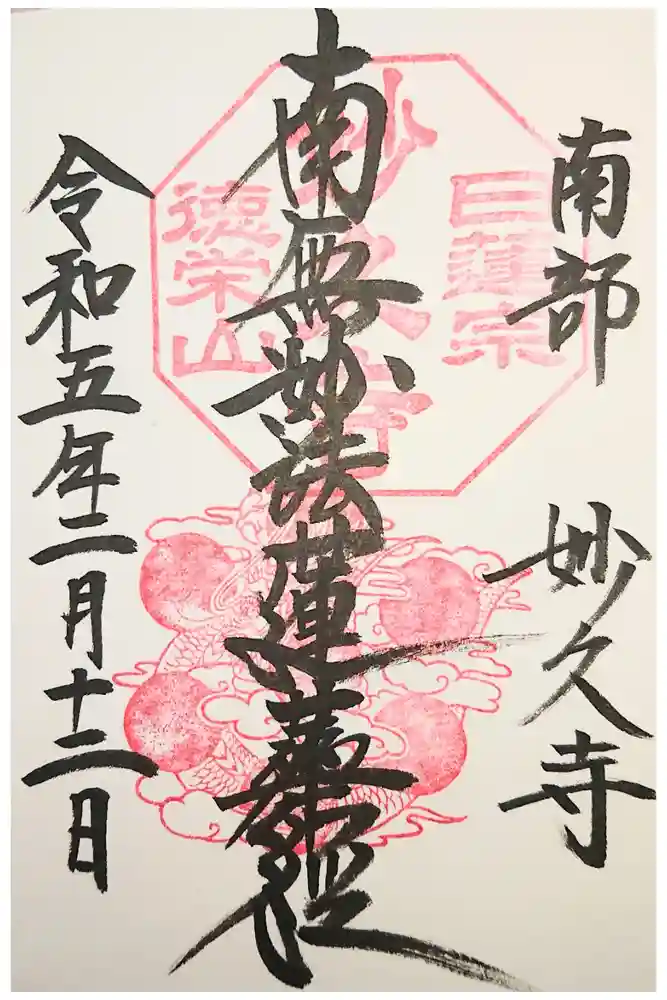 南部 妙久寺
日蓮宗
妙久寺
徳栄山
南無妙法蓮華経
令和五年二月十二日